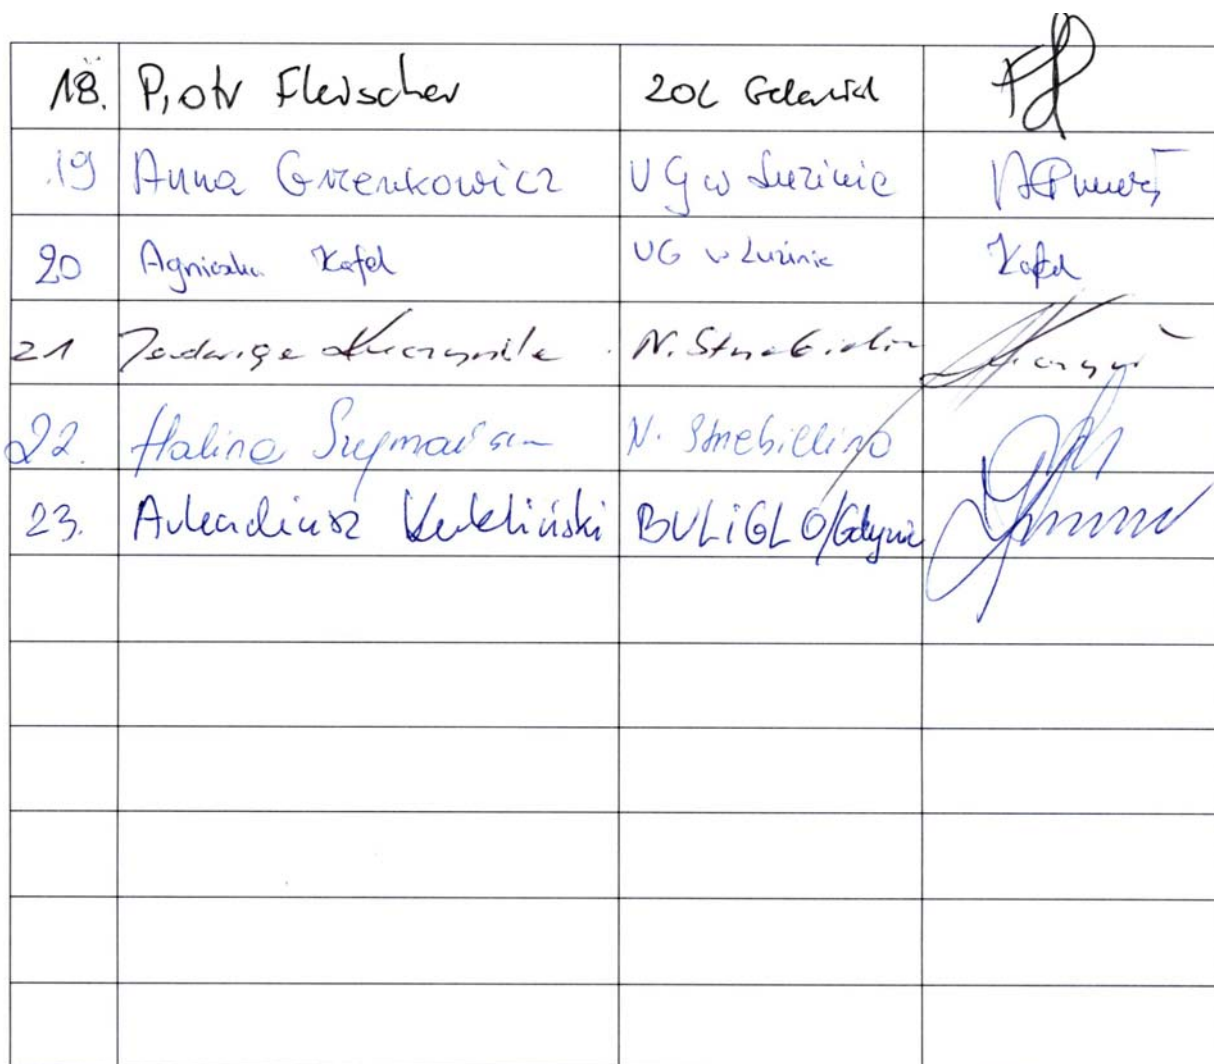 18. Piotr Fleischer ZOL Gdańsk
19 Anna Grzenkowicz UG w Luzinie
20 Agnieszka Kafel UG w Luzinie Kafel
21 Jadwiga N. Strzebielin
22. Halina Szymańska N. Strzebielino
23. Arkadiusz Kukliński BULiGL O/Gdynia